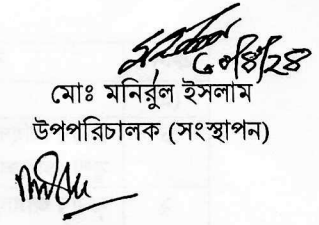 ৩০/৪/২৪
মোঃ মনিরুল ইসলাম
উপপরিচালক (সংস্থাপন)